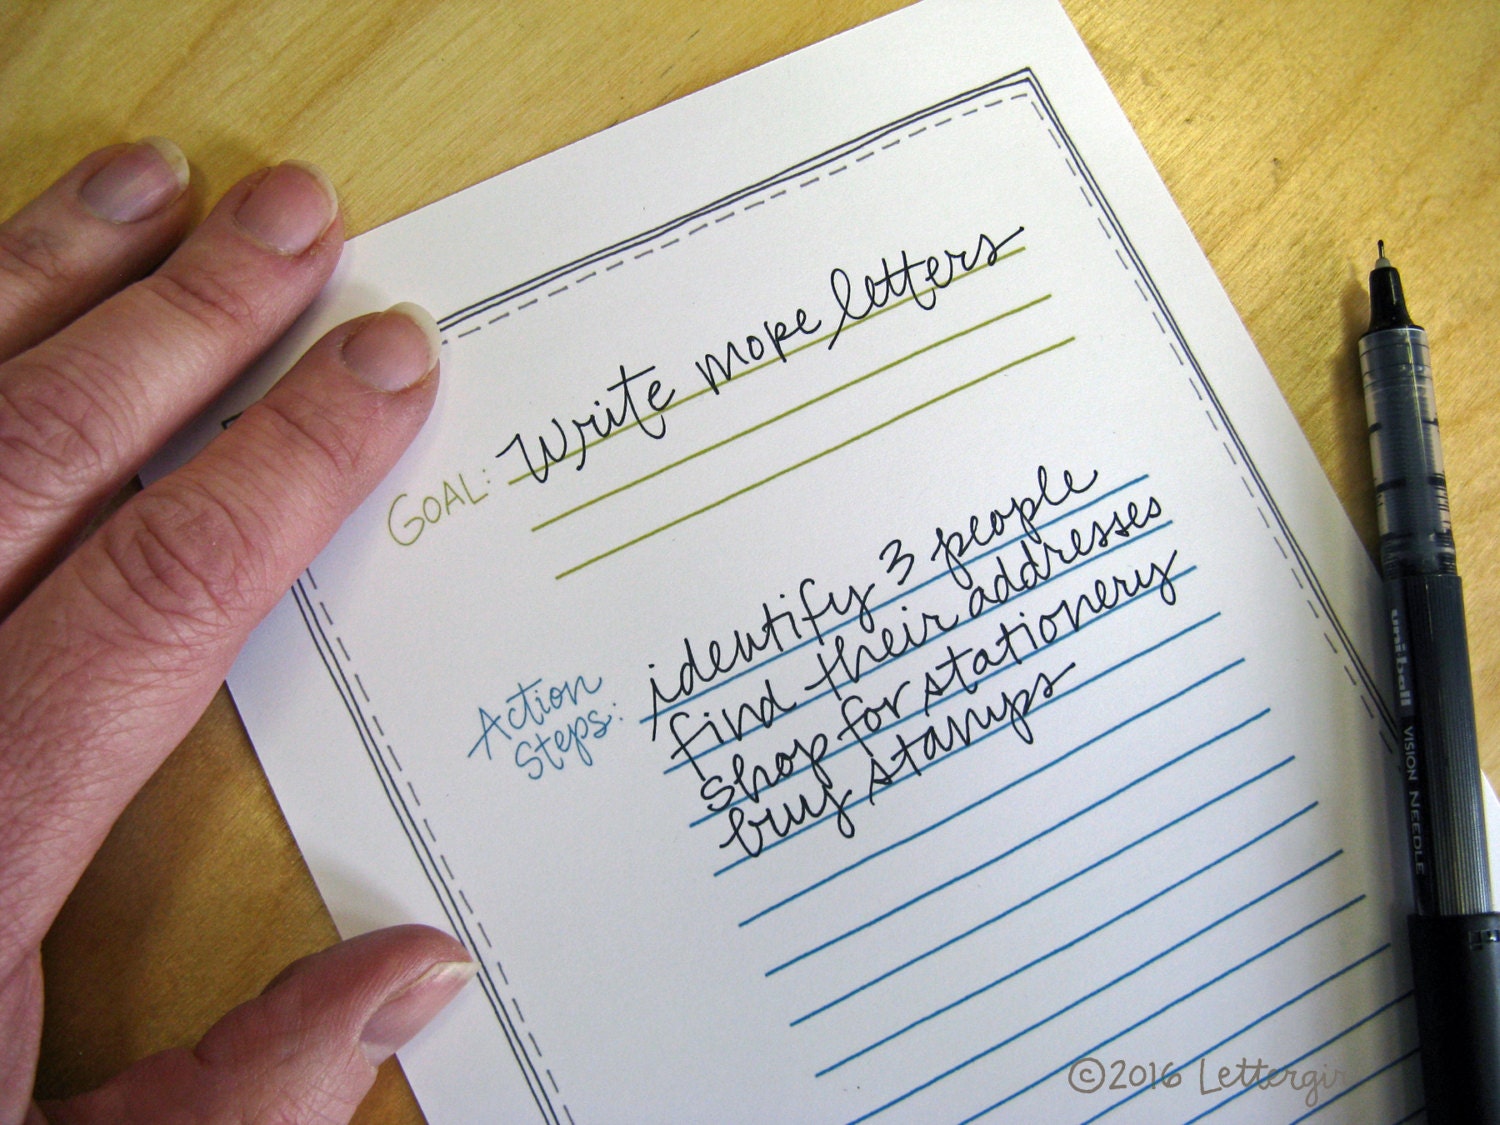 GOAL: Write more letters
Action Steps: identify 3 people
find their addresses
shop for stationery
buy stamps
uniball VISION NEEDLE
©2016 Lettergirl